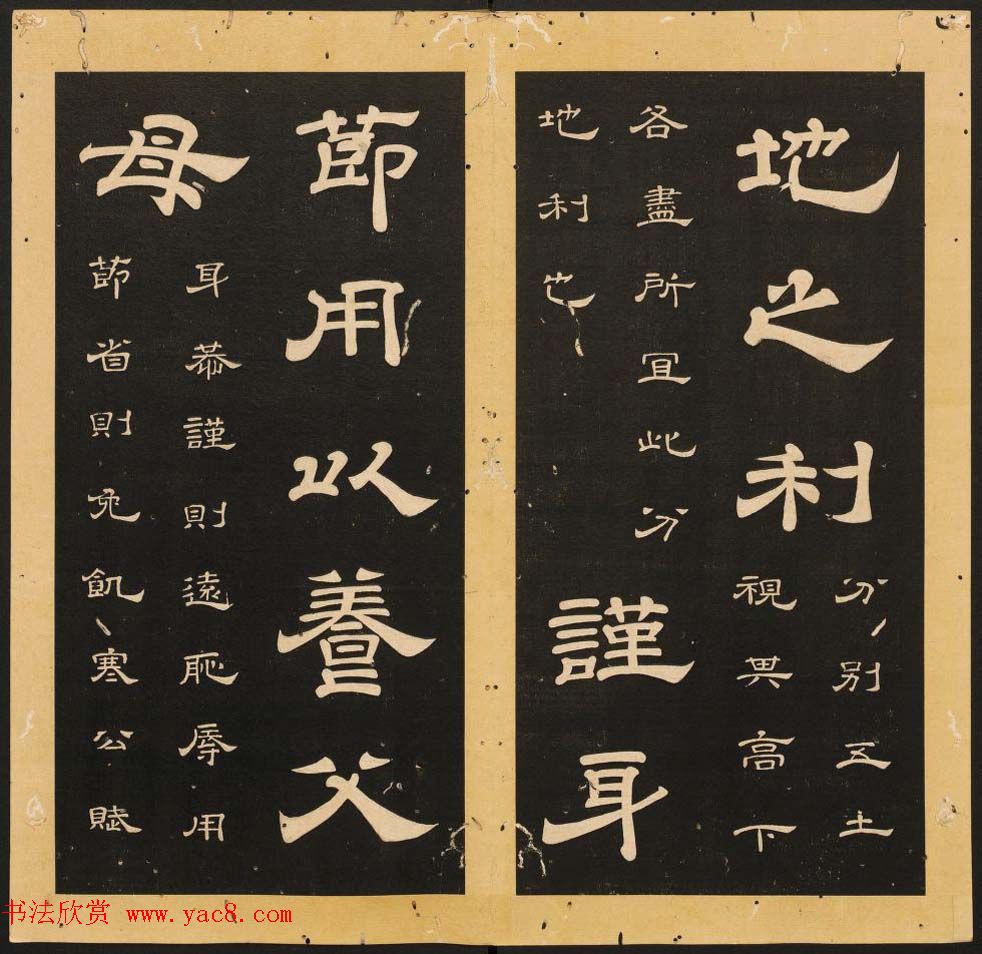 地之利
分別五土
視其高下
各盡所冝此分
地利也
謹身
莭用以養父
母
身恭謹則遠恥辱用
莭省則免飢寒公賦
书法欣赏 www.yac8.com